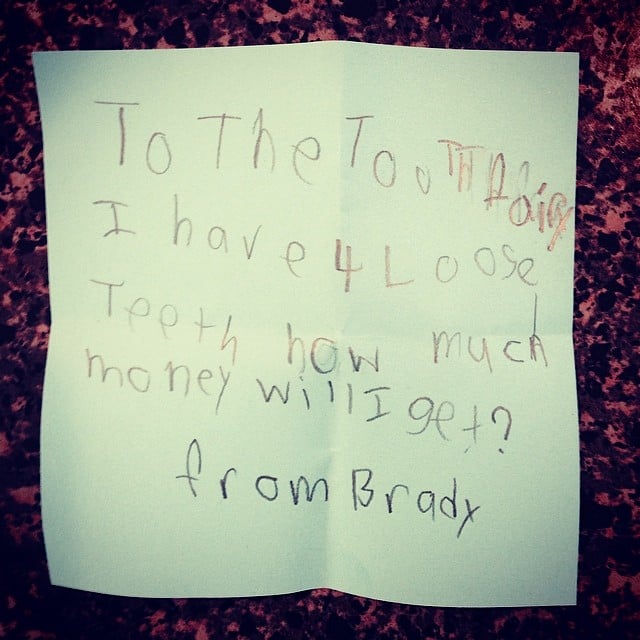 To The TooTH fairy
I have 4 Loose
Teeth how much
money will I get?
from Brady